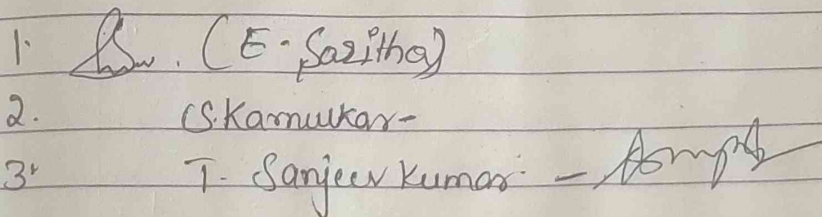 1. (E. Saritha)
2. (S. Karnukar-
3. T. Sanjeev Kumar -